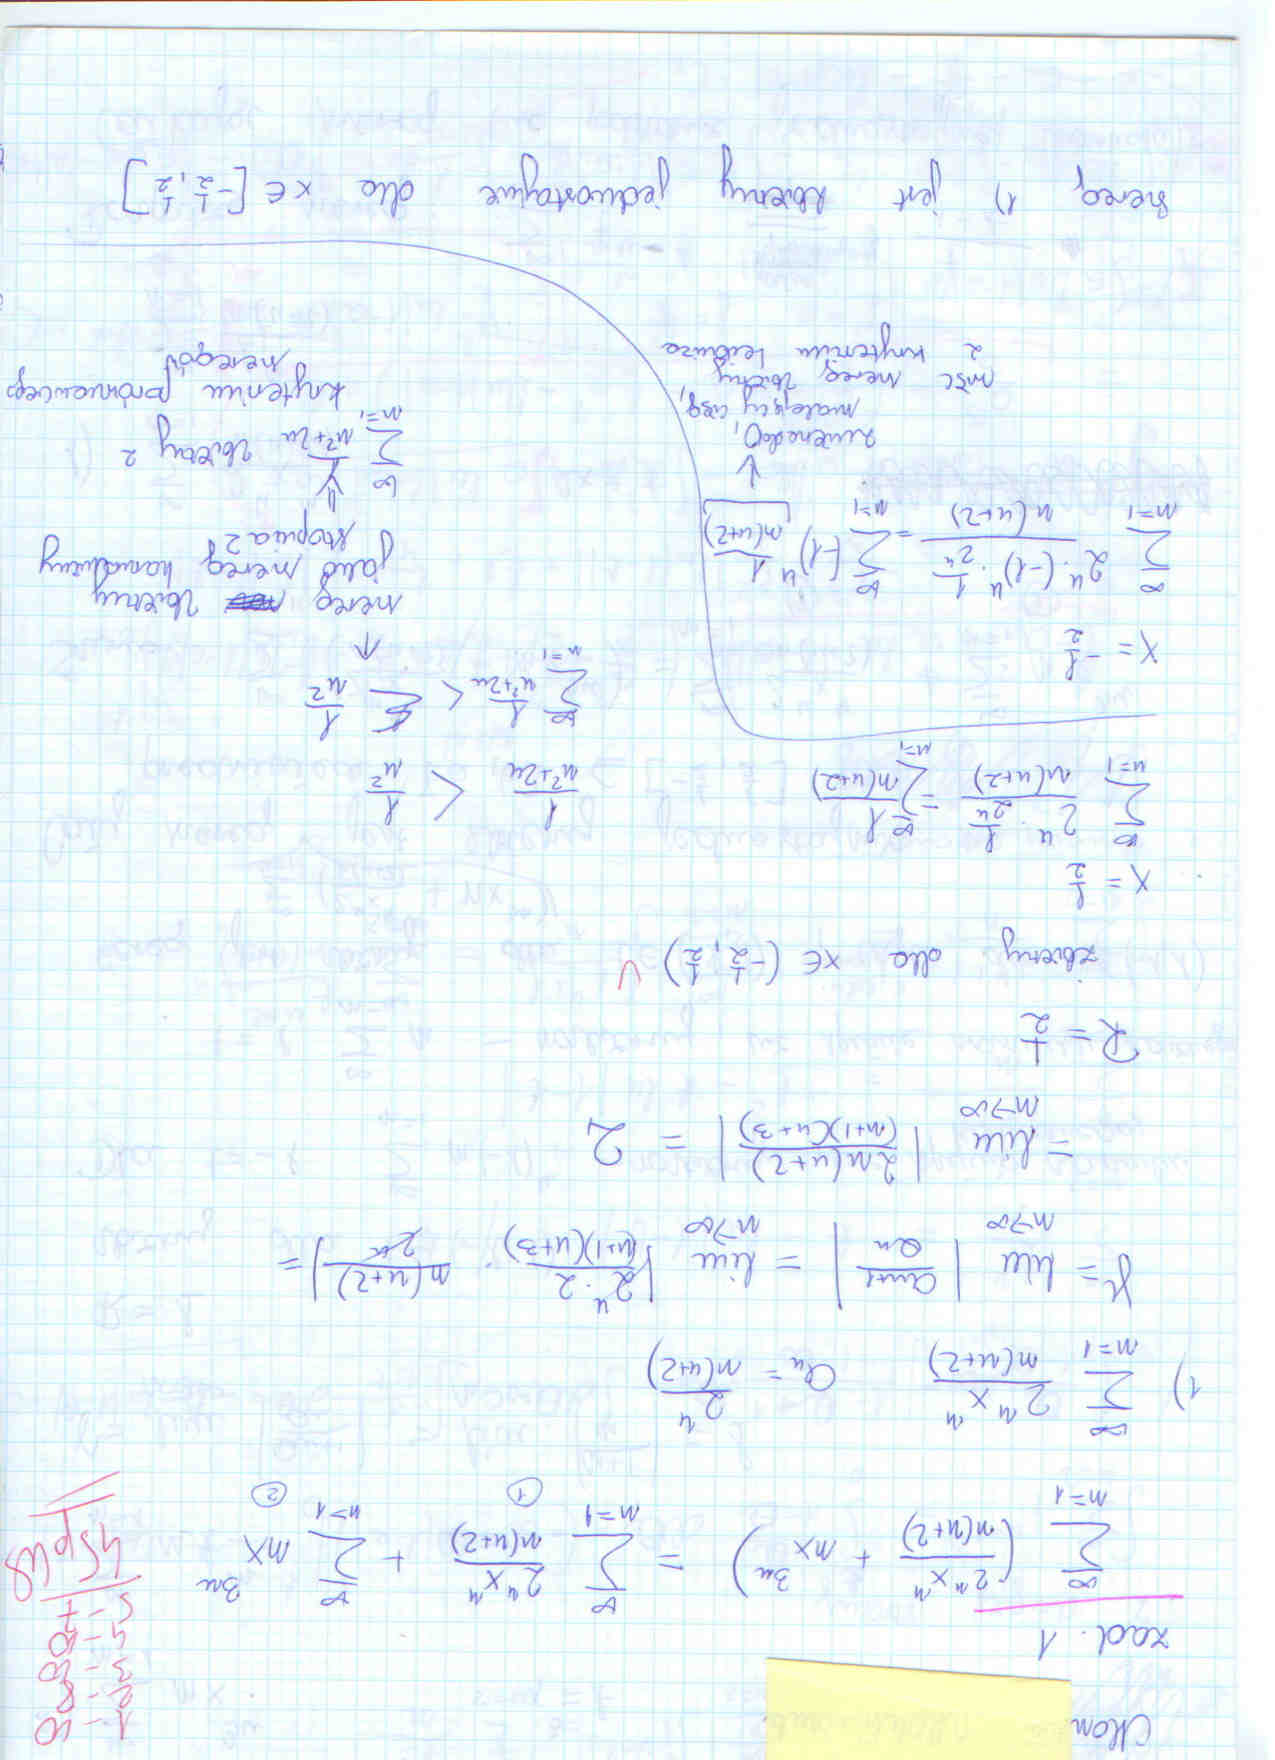 zad. 1
1-10
2-8
3-10
4-10
5-7
45pkt
\sum_{n=1}^{\infty} \left( \frac{2^n x^n}{n(n+2)} + nx^{3n} \right) = \sum_{n=1}^{\infty} \frac{2^n x^n}{n(n+2)} + \sum_{n=1}^{\infty} nx^{3n}
① ②
1) \sum_{n=1}^{\infty} \frac{2^n x^n}{n(n+2)} a_n = \frac{2^n}{n(n+2)}
g = \lim_{n→∞} \left| \frac{a_{n+1}}{a_n} \right| = \lim_{n→∞} \left| \frac{2^n · 2}{(n+1)(n+3)} · \frac{n(n+2)}{2^n} \right| =
= \lim_{n→∞} \left| \frac{2n(n+2)}{(n+1)(n+3)} \right| = 2
R = \frac{1}{2}
zbieżny dla x ∈ (-\frac{1}{2}, \frac{1}{2}) ✓
x = \frac{1}{2}
\sum_{n=1}^{\infty} \frac{2^n · \frac{1}{2^n}}{n(n+2)} = \sum_{n=1}^{\infty} \frac{1}{n(n+2)}
\frac{1}{n^2+2n} < \frac{1}{n^2}
\sum_{n=1}^{\infty} \frac{1}{n^2+2n} < \sum \frac{1}{n^2}
↓
szereg zbieżny
jako szereg harmoniczny
stopnia 2
⇓
\sum_{n=1}^{\infty} \frac{1}{n^2+2n} zbieżny z
kryterium porównawczego
szeregów
x = -\frac{1}{2}
\sum_{n=1}^{\infty} \frac{2^n · (-1)^n · \frac{1}{2^n}}{n(n+2)} = \sum_{n=1}^{\infty} (-1)^n \frac{1}{n(n+2)}
↓
zmierza do 0,
malejący ciąg,
więc szereg zbieżny
z kryterium Leibniza
szereg 1) jest zbieżny jednostajnie dla x ∈ [-\frac{1}{2}, \frac{1}{2}]